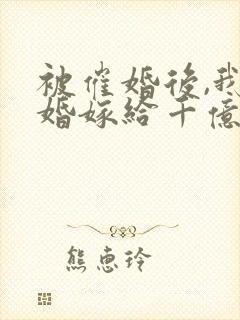 被催婚後,我
婚嫁給千億
熊惠玲